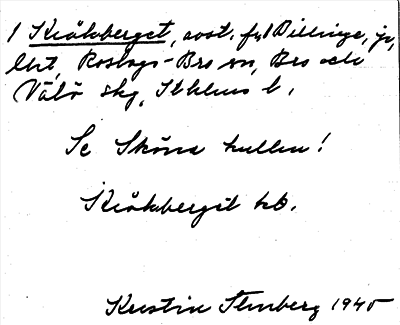 1 Kråkberget, avst. fr. 1 Billinge, ju,
lht, Roslags-Bro sn, Bro och
Väddö skg, Sthlms l.
Se Sköna kullen!
Kråkberget hb.
Kerstin Stenberg 1945